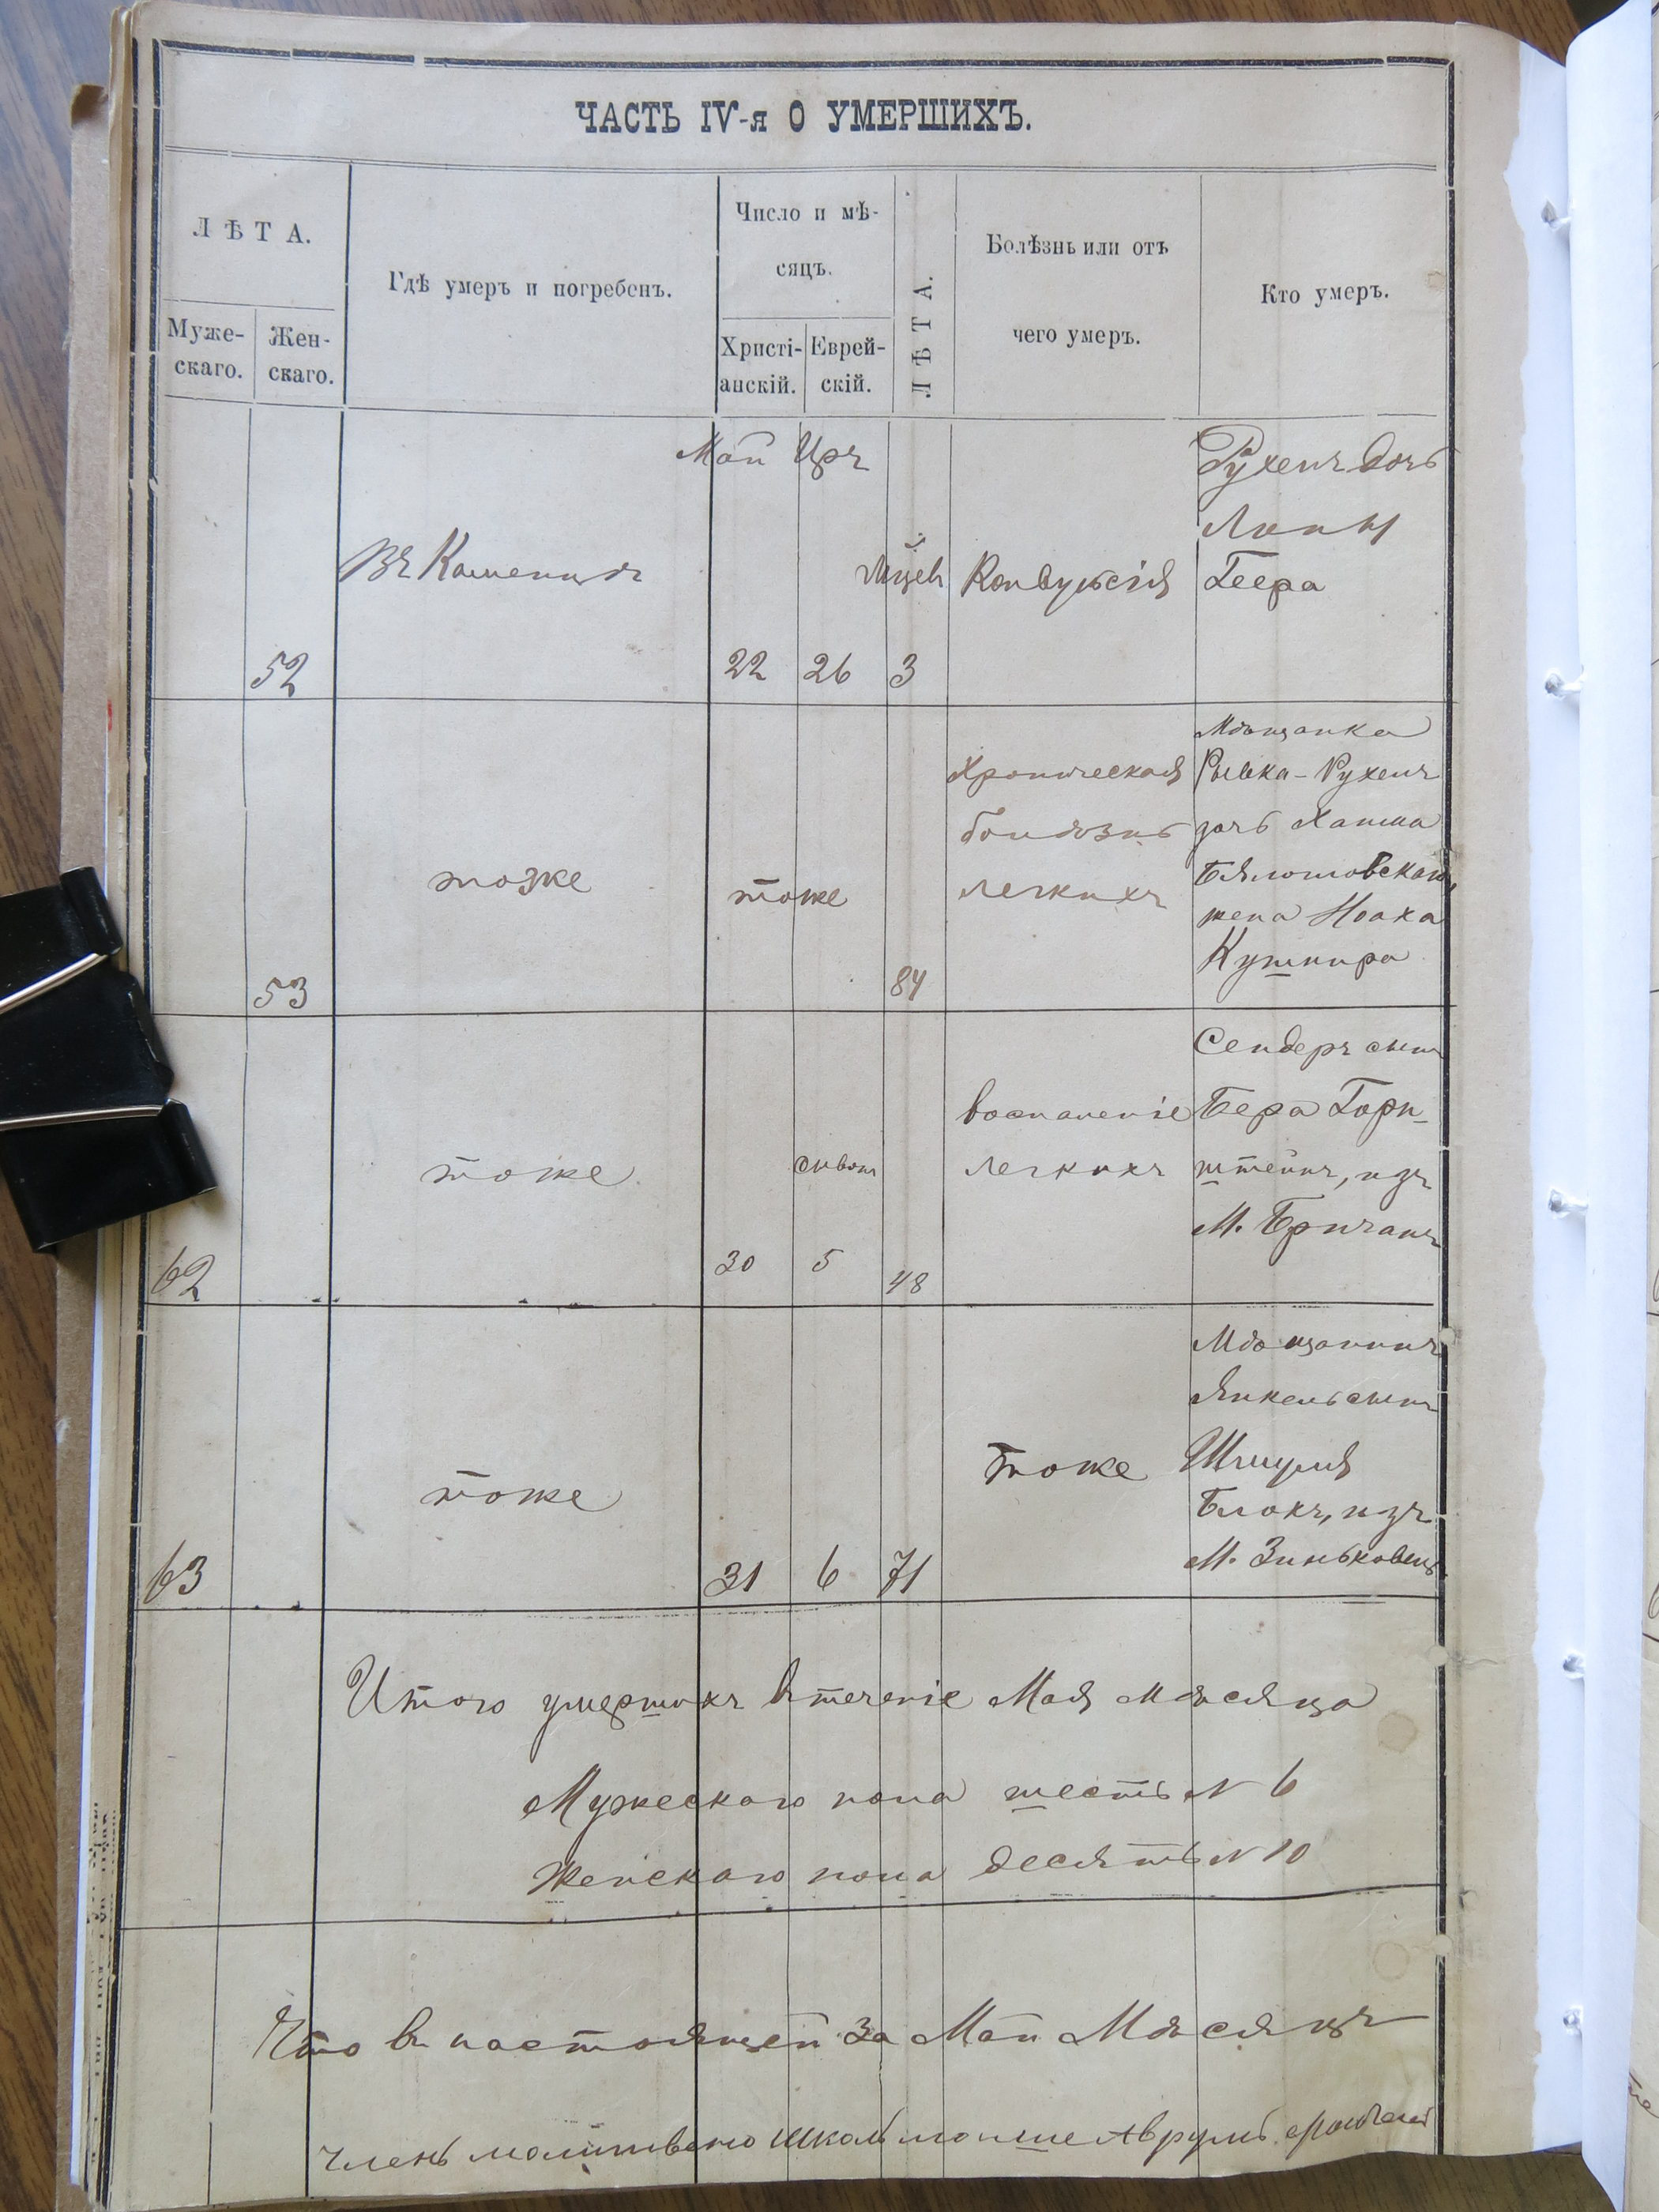 ЧАСТЬ IV-я О УМЕРШИХЪ.
ЛѢТА.
Муже-
скаго.
Жен-
скаго.
Гдѣ умеръ и погребенъ.
Число и мѣ-
сяцъ.
Христі-
анскій.
Еврей-
скій.
ЛѢТА.
Болѣзнь или отъ
чего умеръ.
Кто умеръ.
Май Иръ
52
Въ Каменцѣ
22 26 3
Конвульсія
Рухель дочь
Липы
Геера
53
тоже
тоже
84
Хроническая
болѣзнь
легкихъ
Мѣщанка
Рывка-Рухель
дочь Хаима
жена Ноаха
Кушнира
62
тоже
30
сивонъ
5
48
воспаленіе
легкихъ
Сендеръ сынъ
Бера Горн-
штейнъ, изъ
М. Бричанъ
63
тоже
31 6 71
тоже
Мѣщанинъ
Янкель сынъ
Шмуля
Блокъ, изъ
М. Зиньковецъ
Итого умершихъ втеченіе Мая мѣсяца
Мужескаго пола шесть N 6
Женскаго пола десять N 10
Что въ настоящей за Май Мѣсяцъ
членъ молитвено школы мошне Аврумъ